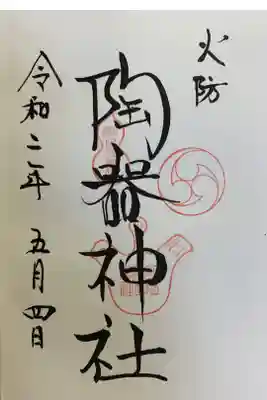 火防
陶器神社
令和二年 五月四日